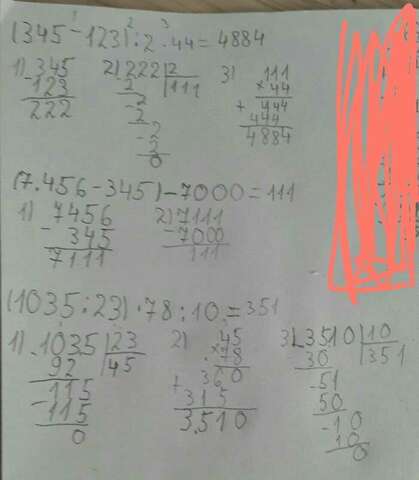 (345 - 123) : 2 · 44 = 4884
1) 345 2) 222 | 2 3) 111
- 123 2 111 × 44
222 - 2 444
2 + 444
- 2 4884
2
0
(7.456 - 345) - 7000 = 111
1) 7456 2) 7111
- 345 - 7000
7111 111
(1035 : 23) · 78 : 10 = 351
1) 1035 | 23 2) 45 3) 3510 | 10
92 45 × 78 30 351
115 360 - 51
- 115 + 315 50
0 3.510 - 10
10
0